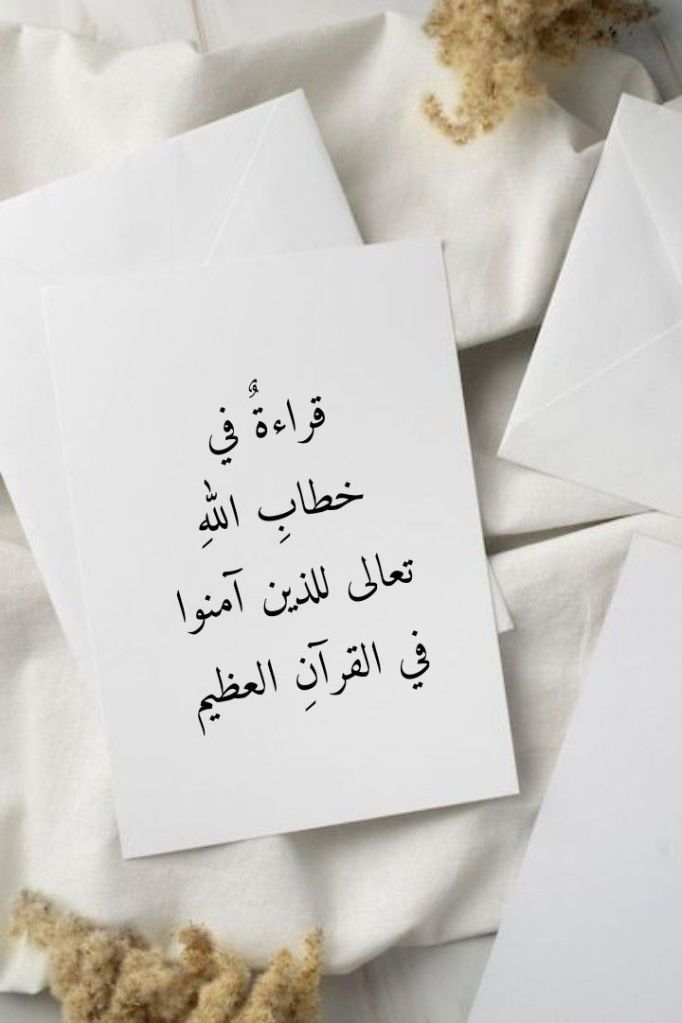 قراءةٌ في
خطابِ اللهِ
تعالى للذين آمنوا
في القرآنِ العظيم